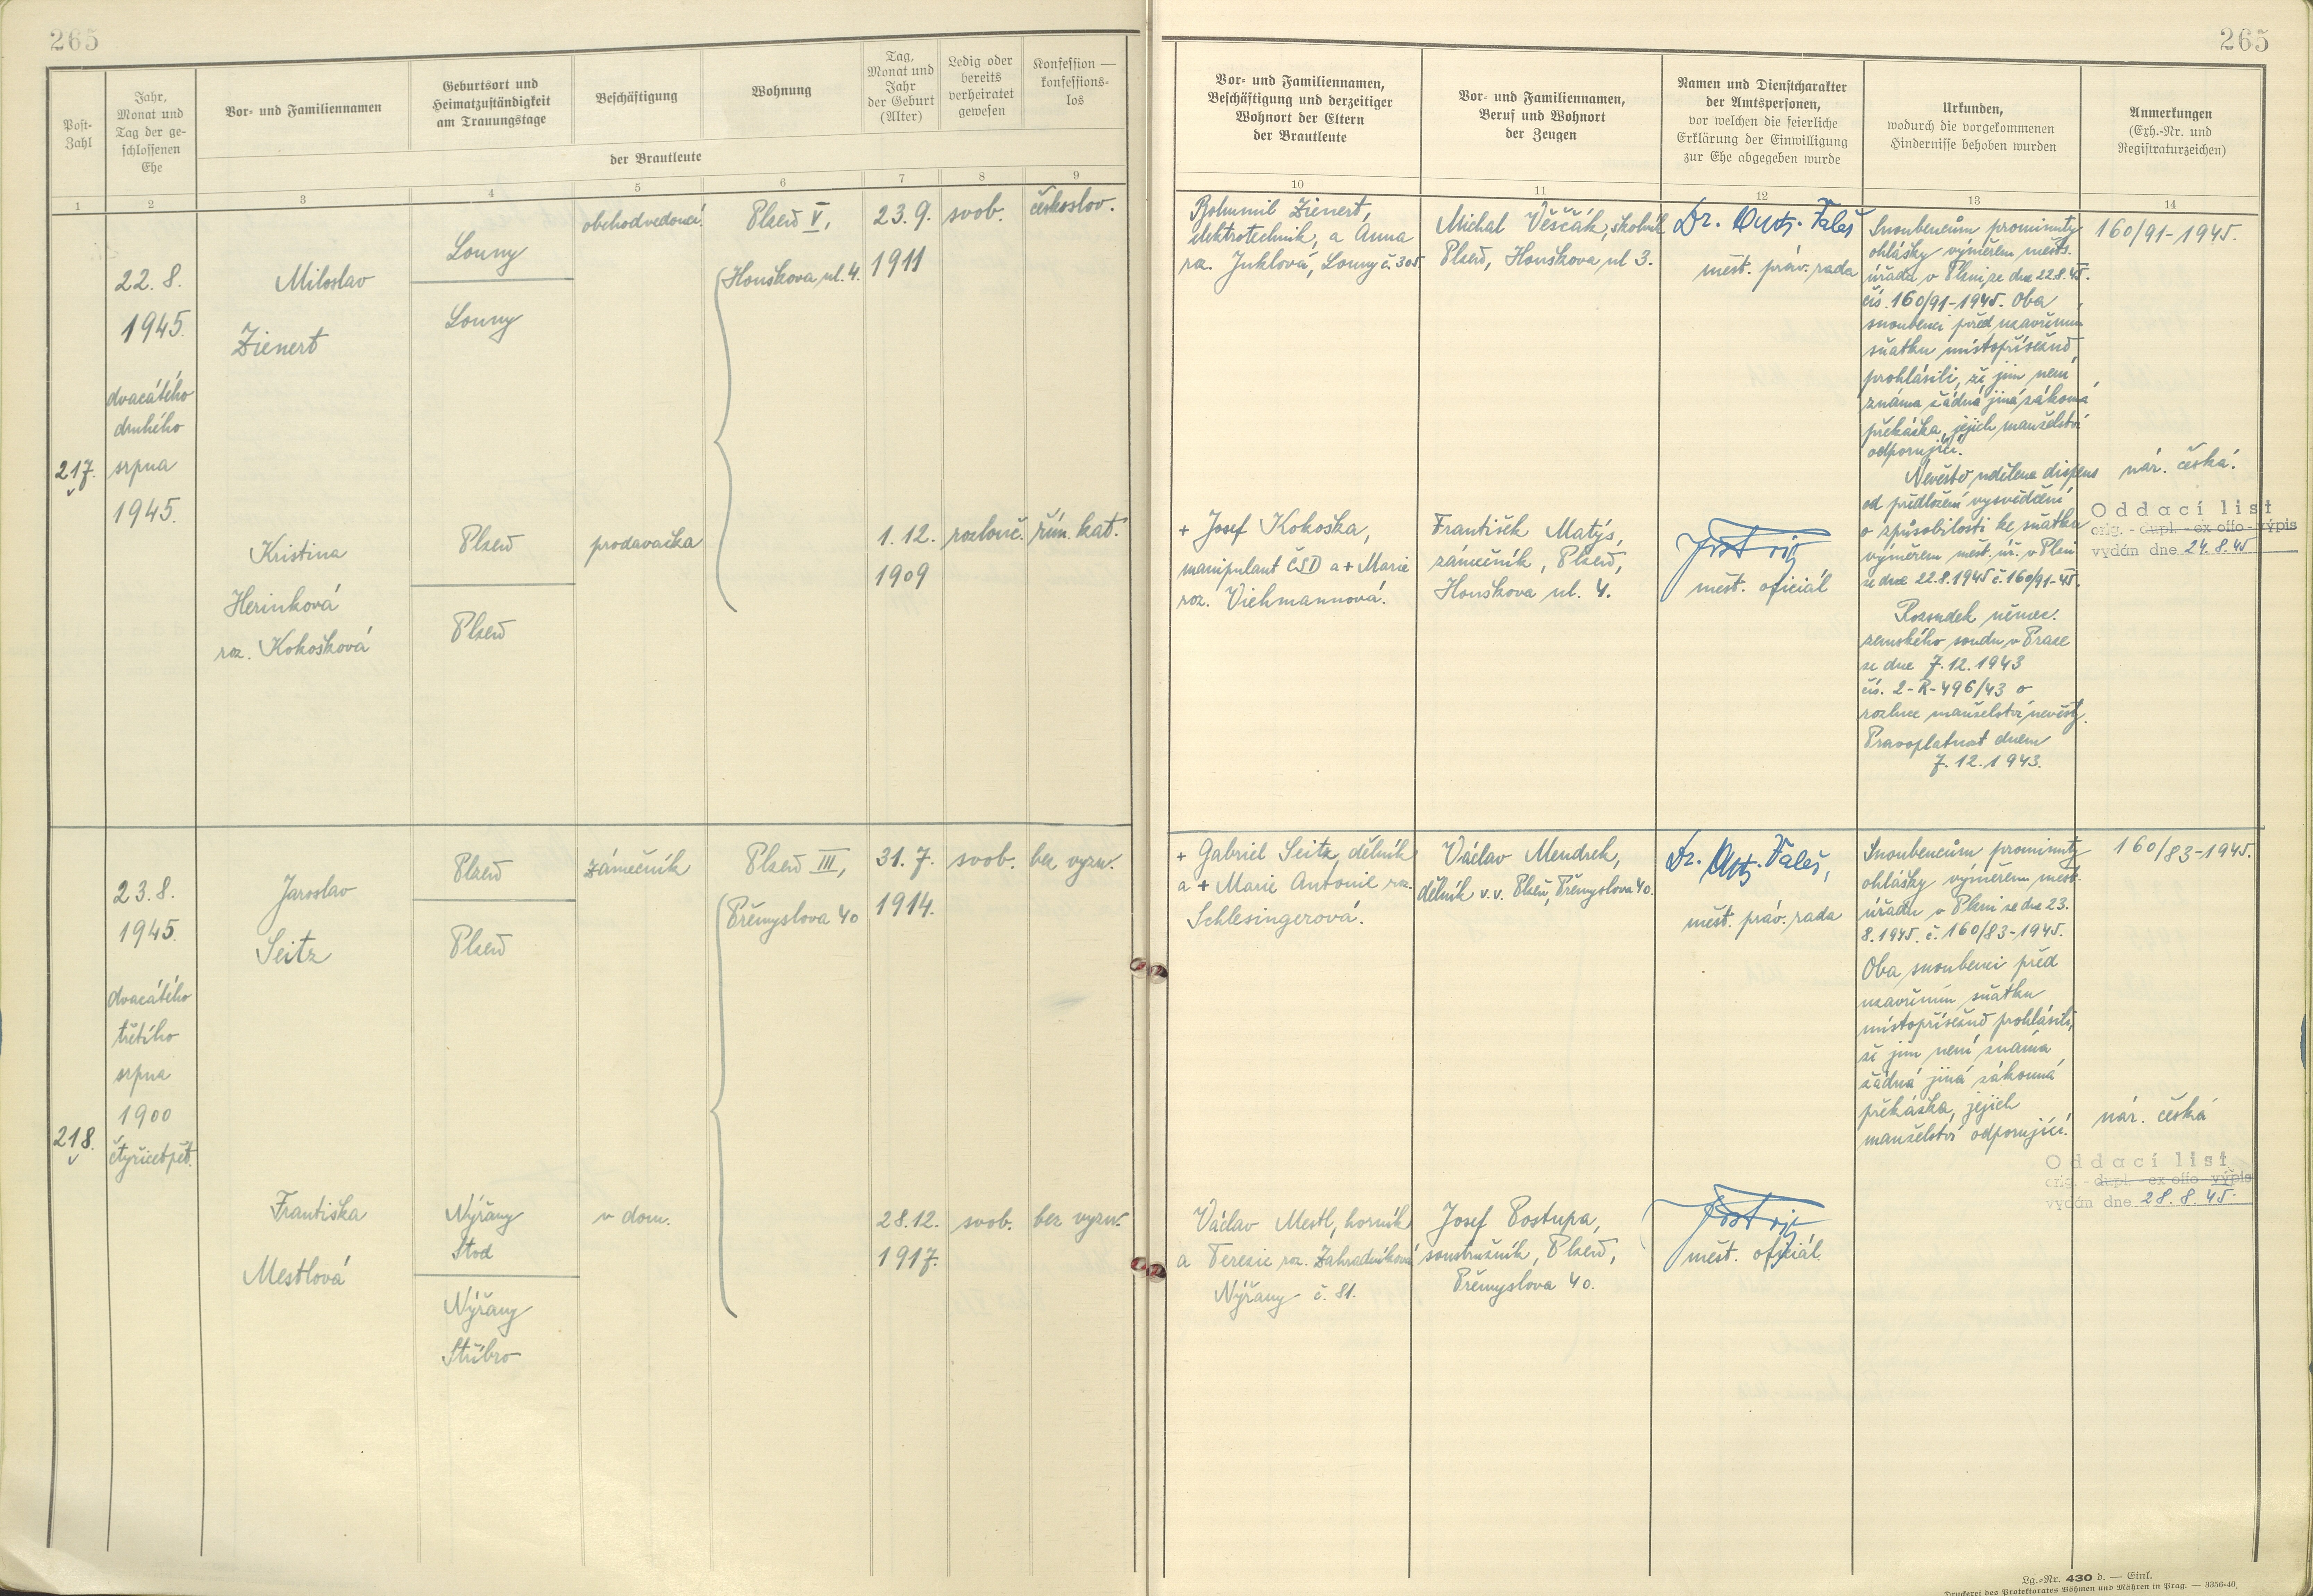 265
265
Post-
Zahl
Jahr,
Monat und
Tag der ge-
schlossenen
Ehe
Vor- und Familiennamen
Geburtsort und
Heimatzuständigkeit
am Trauungstage
Beschäftigung
Wohnung
Tag,
Monat und
Jahr
der Geburt
(Alter)
Ledig oder
bereits
verheiratet
gewesen
Konfession —
konfessions-
los
der Brautleute
Vor- und Familiennamen,
Beschäftigung und derzeitiger
Wohnort der Eltern
der Brautleute
Vor- und Familiennamen,
Beruf und Wohnort
der Zeugen
Namen und Dienstcharakter
der Amtspersonen,
vor welchen die feierliche
Erklärung der Einwilligung
zur Ehe abgegeben wurde
Urkunden,
wodurch die vorgekommenen
Hindernisse behoben wurden
Anmerkungen
(Exh.-Nr. und
Registraturzeichen)
1 2 3 4 5 6 7 8 9 10 11 12 13 14
217.
22. 8.
1945.
dvacátého
druhého
srpna
1945.
Miloslav
Zienert
Louny
Louny
obchodvedoucí
Plzeň V,
Houškova ul. 4.
23. 9.
1911
svob.
českoslov.
Kristina
Herinková
roz. Kokošková
Plzeň
Plzeň
prodavačka
1. 12.
1909
rozlouč.
řím. kat.
Bohumil Zienert,
elektrotechnik, a Anna
roz. Juklová, Louny č. 305
+ Josef Kokoška,
manipulant ČSD a + Marie
roz. Viehmannová.
Michal Věščák, školník
Plzeň, Houškova ul 3.
František Matýs,
zámečník, Plzeň,
Houškova ul. 4.
Dr. Ant. Faleš
měst. práv. rada
měst. oficiál
Snoubencům prominuty
ohlášky výměrem měst.
úřadu v Plzni ze dne 22.8.45.
čís. 160/91-1945. Oba
snoubenci před uzavřením
sňatku místopřísežně
prohlásili, že jim není
známa žádná jiná zákonná
překážka, jejich manželství
odporující.
Nevěstě udělena dispens
od předložení vysvědčení
o způsobilosti ke sňatku
výměrem měst. úř. v Plzni
ze dne 22.8.1945 č. 160/91-45.
Rozsudek němec.
zemského soudu v Praze
ze dne 7.12.1943
čís. 2-R-496/43 o
rozluce manželství nevěsty.
Pravoplatnost dnem
7.12.1943.
160/91-1945.
nár. česká.
Oddací list
orig. - dupl. - ex offo - výpis
vydán dne 24. 8. 45
218.
23. 8.
1945.
dvacátého
třetího
srpna
1900
čtyřicetpět.
Jaroslav
Seitz
Plzeň
Plzeň
zámečník
Plzeň III,
Přemyslova 40
31. 7.
1914.
svob.
bez vyzn.
Františka
Mestlová
Nýřany
Stod
Nýřany
Stříbro
v dom.
28.12.
1917.
svob.
bez vyzn.
+ Gabriel Seitz, dělník
a + Marie Antonie roz.
Schlesingerová.
Václav Mestl, horník
a Terezie roz. Zahradníková
Nýřany č. 81.
Václav Mendrek,
dělník v.v. Plzeň, Přemyslova 40.
Josef Postupa,
soustružník, Plzeň,
Přemyslova 40.
Dr. Ant. Faleš,
měst. práv. rada
měst. oficiál
Snoubencům prominuty
ohlášky výměrem měst.
úřadu v Plzni ze dne 23.
8.1945. č. 160/83-1945.
Oba snoubenci před
uzavřením sňatku
místopřísežně prohlásili,
že jim není známa
žádná jiná zákonná
překážka, jejich
manželství odporující.
160/83-1945.
nár. česká
Oddací list
orig. - dupl. - ex offo - výpis
vydán dne 28. 8. 45.
Lg.-Nr. 430 d. — Einl.
Druckerei des Protektorates Böhmen und Mähren in Prag. — 3356-40.